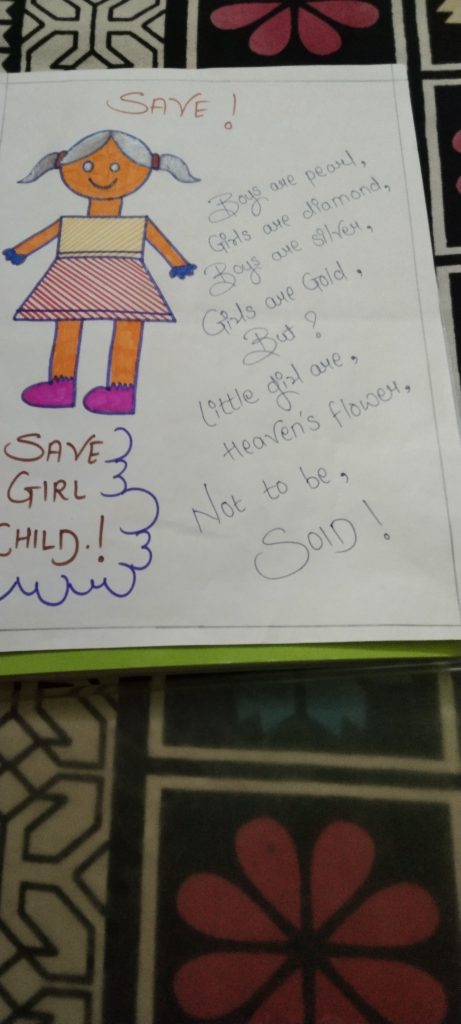 SAVE!
Boys are pearl,
Girls are diamond,
Boys are silver,
Girls are Gold,
But?
little girl are,
Heaven's flower,
Not to be,
SOlD!
SAVE
GIRL
CHILD.!